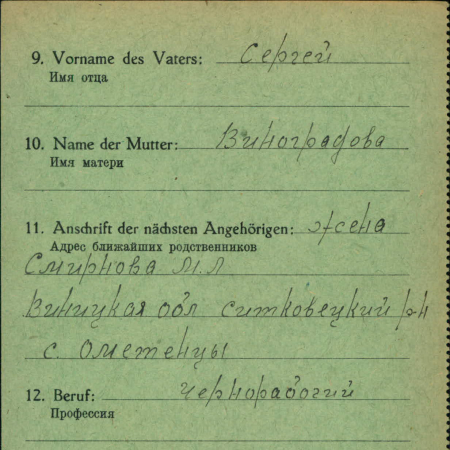 9. Vorname des Vaters: Сергей
Имя отца
10. Name der Mutter: Виноградова
Имя матери
11. Anschrift der nächsten Angehörigen: жена
Адрес ближайших родственников
Смирнова М.Л
Виницкая обл ситковецкий рн
с. Ометенцы
12. Beruf: Чернорабочий
Профессия